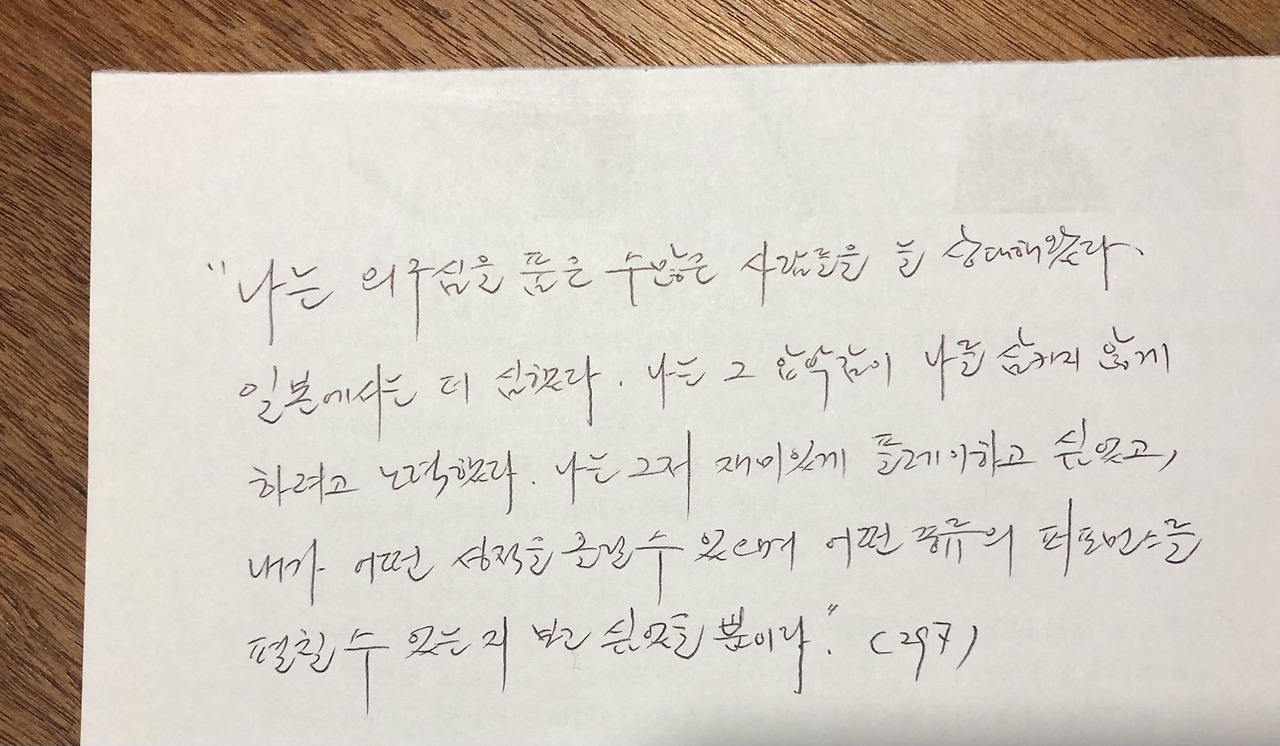 "나는 의구심을 품은 수많은 사람들을 늘 상대해왔다.
일본에서는 더 심했다. 나는 그 압박감이 나를 삼키지 않게
하려고 노력했다. 나는 그저 재미있게 플레이하고 싶었고,
내가 어떤 성적을 올릴 수 있으며 어떤 종류의 퍼포먼스를
펼칠 수 있는지 보고 싶었을 뿐이다." (297)